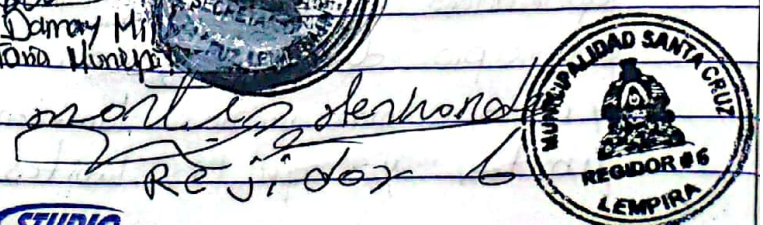 Damary Mi
SECRETARIA
Hernand
Rejidor 6
MUNICIPALIDAD SANTA CRUZ
REGIDOR #6
LEMPIRA
STUDIO